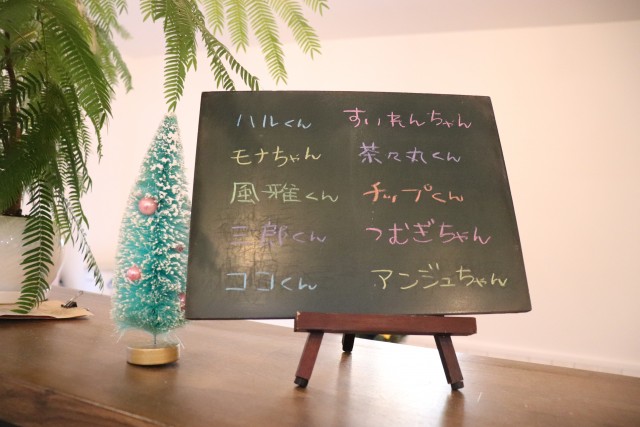 ハルくん すいれんちゃん
モナちゃん 茶々丸くん
風雅くん チップくん
三郎くん つむぎちゃん
ココくん アンジュちゃん